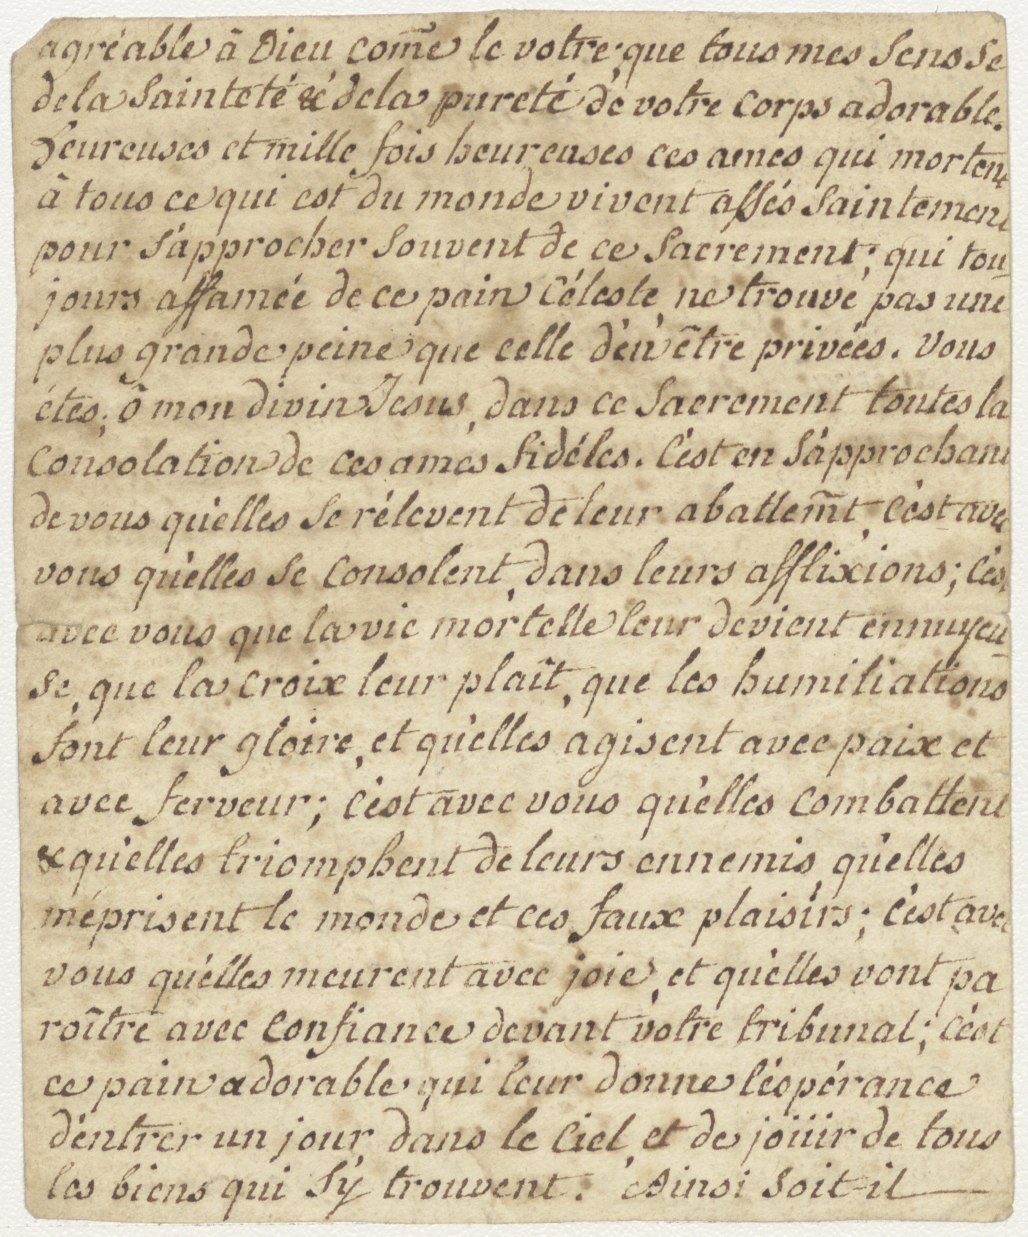 agréable â Dieu com̃e le votre, que tous mes sens se
de la sainteté & de la pureté de votre corps adorable.
Heureuses et mille fois heureuses ces ames qui morten
â tous ce qui est du monde vivent assés saintement
pour s'approcher souvent de ce sacrement; qui tou-
jours affamée de ce pain céleste, ne trouve pas une
plus grande peine que celle d'en être privées. Vous
étes, ô mon divin Jesus, dans ce sacrement toutes la
consolation de ces ames fidéles. C'est en s'approchant
de vous qu'elles se rélevent de leur abattem̃t, c'est avec
vous qu'elles se consolent, dans leurs afflixions; c'es
avec vous que la vie mortelle leur devient ennuyeu-
se, que la croix leur plaît, que les humiliations
font leur gloire, et qu'elles agisent avec paix et
avec ferveur; c'est avec vous qu'elles combattent
& qu'elles triomphent de leurs ennemis, qu'elles
méprisent le monde et ces faux plaisirs; c'est avec
vous qu'elles meurent avec joie, et qu'elles vont pa
roître avec confiance devant votre tribunal; c'est
ce pain adorable qui leur donne l'éspérance
d'entrer un jour, dans le ciel, et de joüir de tous
les biens qui s'y trouvent. Ainsi soit-il